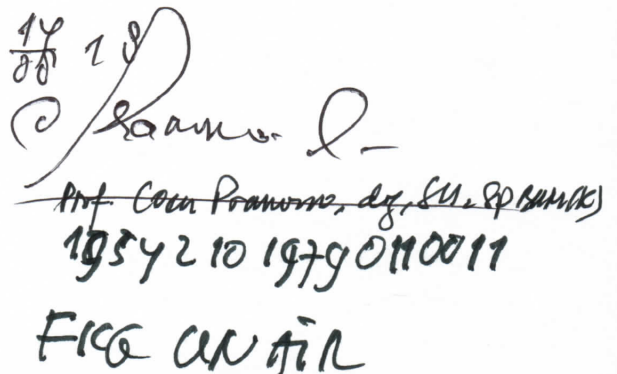 14/08 19
Prof. Coen Pramono, dg, SU, Sp BM(K)
195421019790110011
FKG UNAIR